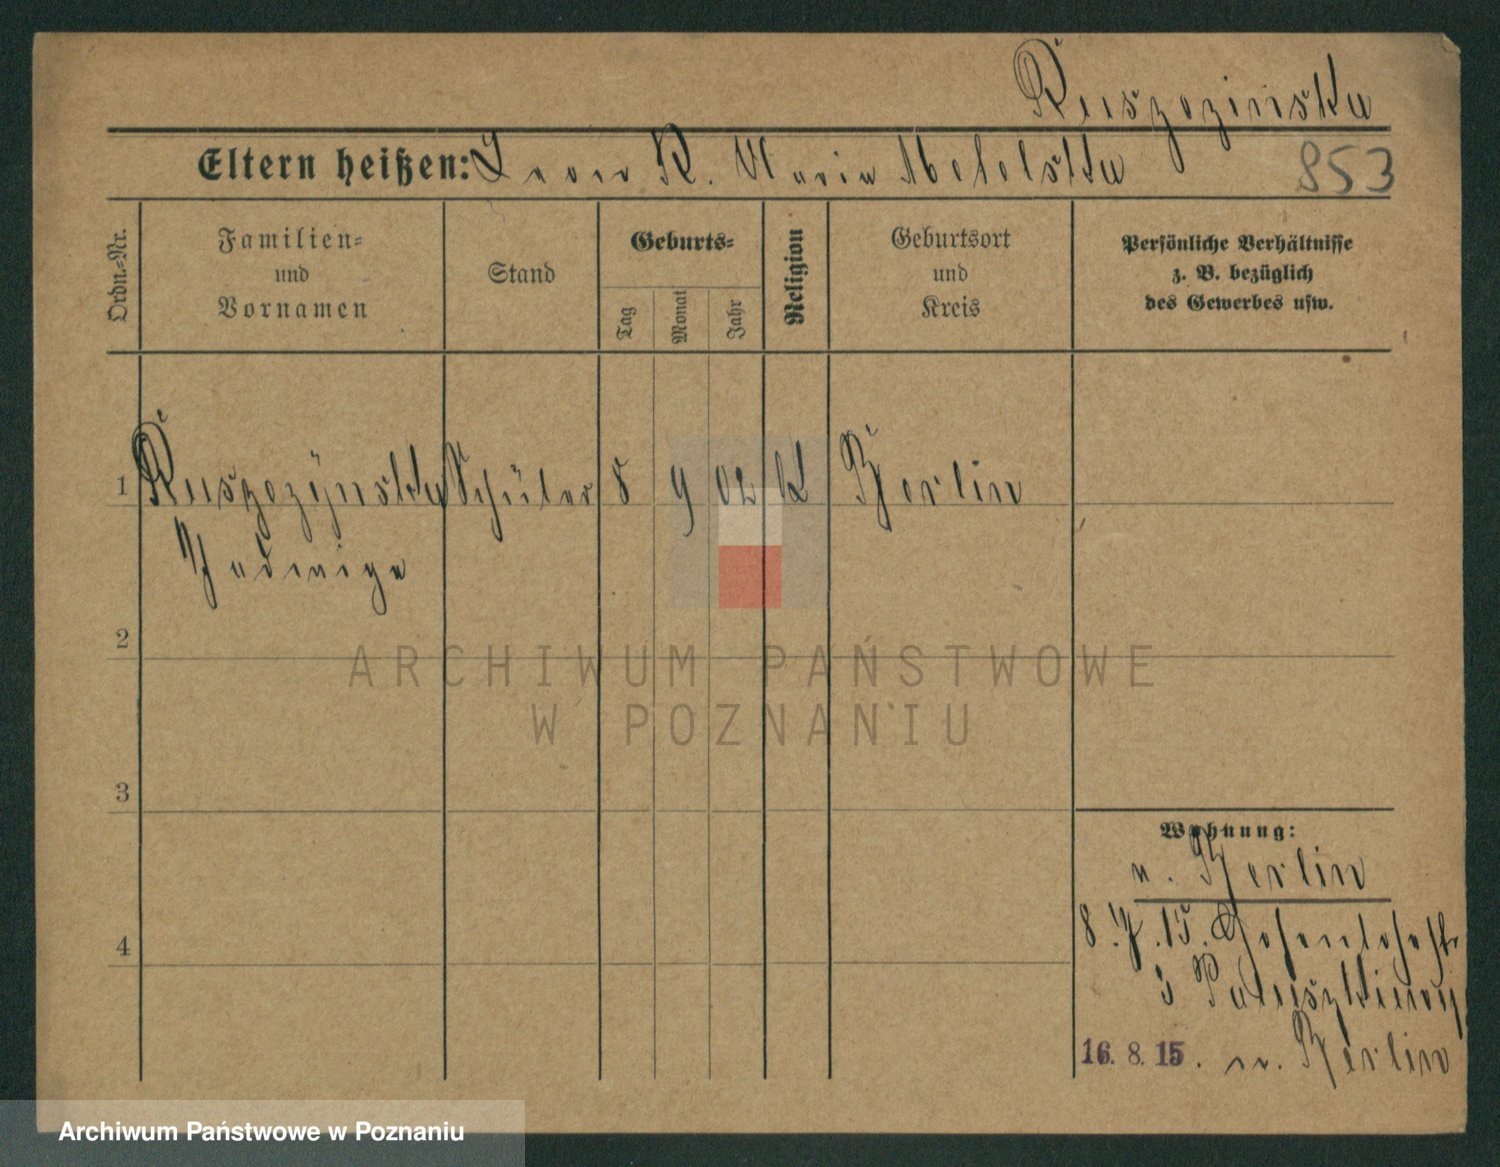 Ruszczinska
Eltern heißen: Leon R. Maria
853
Ordn.-Nr.
Familien-
und
Vornamen
Stand
Geburts-
Tag
Monat
Jahr
Religion
Geburtsort
und
Kreis
Persönliche Verhältnisse
z. B. bezüglich
des Gewerbes usw.
1 Ruszczynska Schüler 8 9 02 K Berlin
Hedwige
2
ARCHIWUM PAŃSTWOWE
W POZNANIU
3
Wohnung:
n. Berlin
4
8. 7. 15. Hohenlohestr.
3
16. 8. 15. n. Berlin
Archiwum Państwowe w Poznaniu